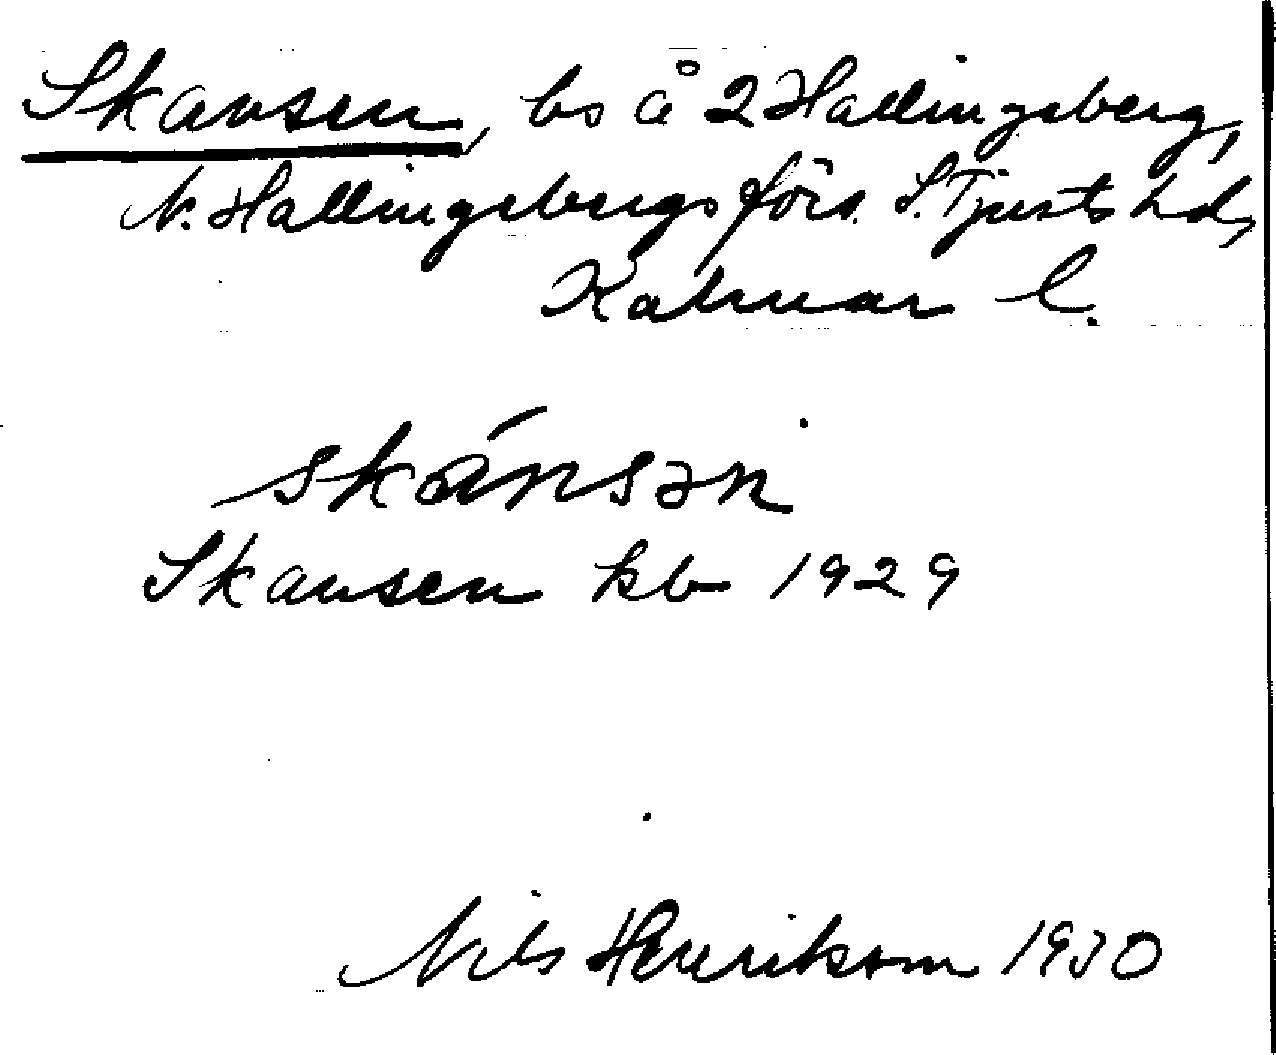 Skansen, bs å 2 Hallingeberg,
N. Hallingebergs förs. S. Tjusts hd,
Kalmar l.
skánsən
Skansen kb 1929
Nils Henrikson 1930